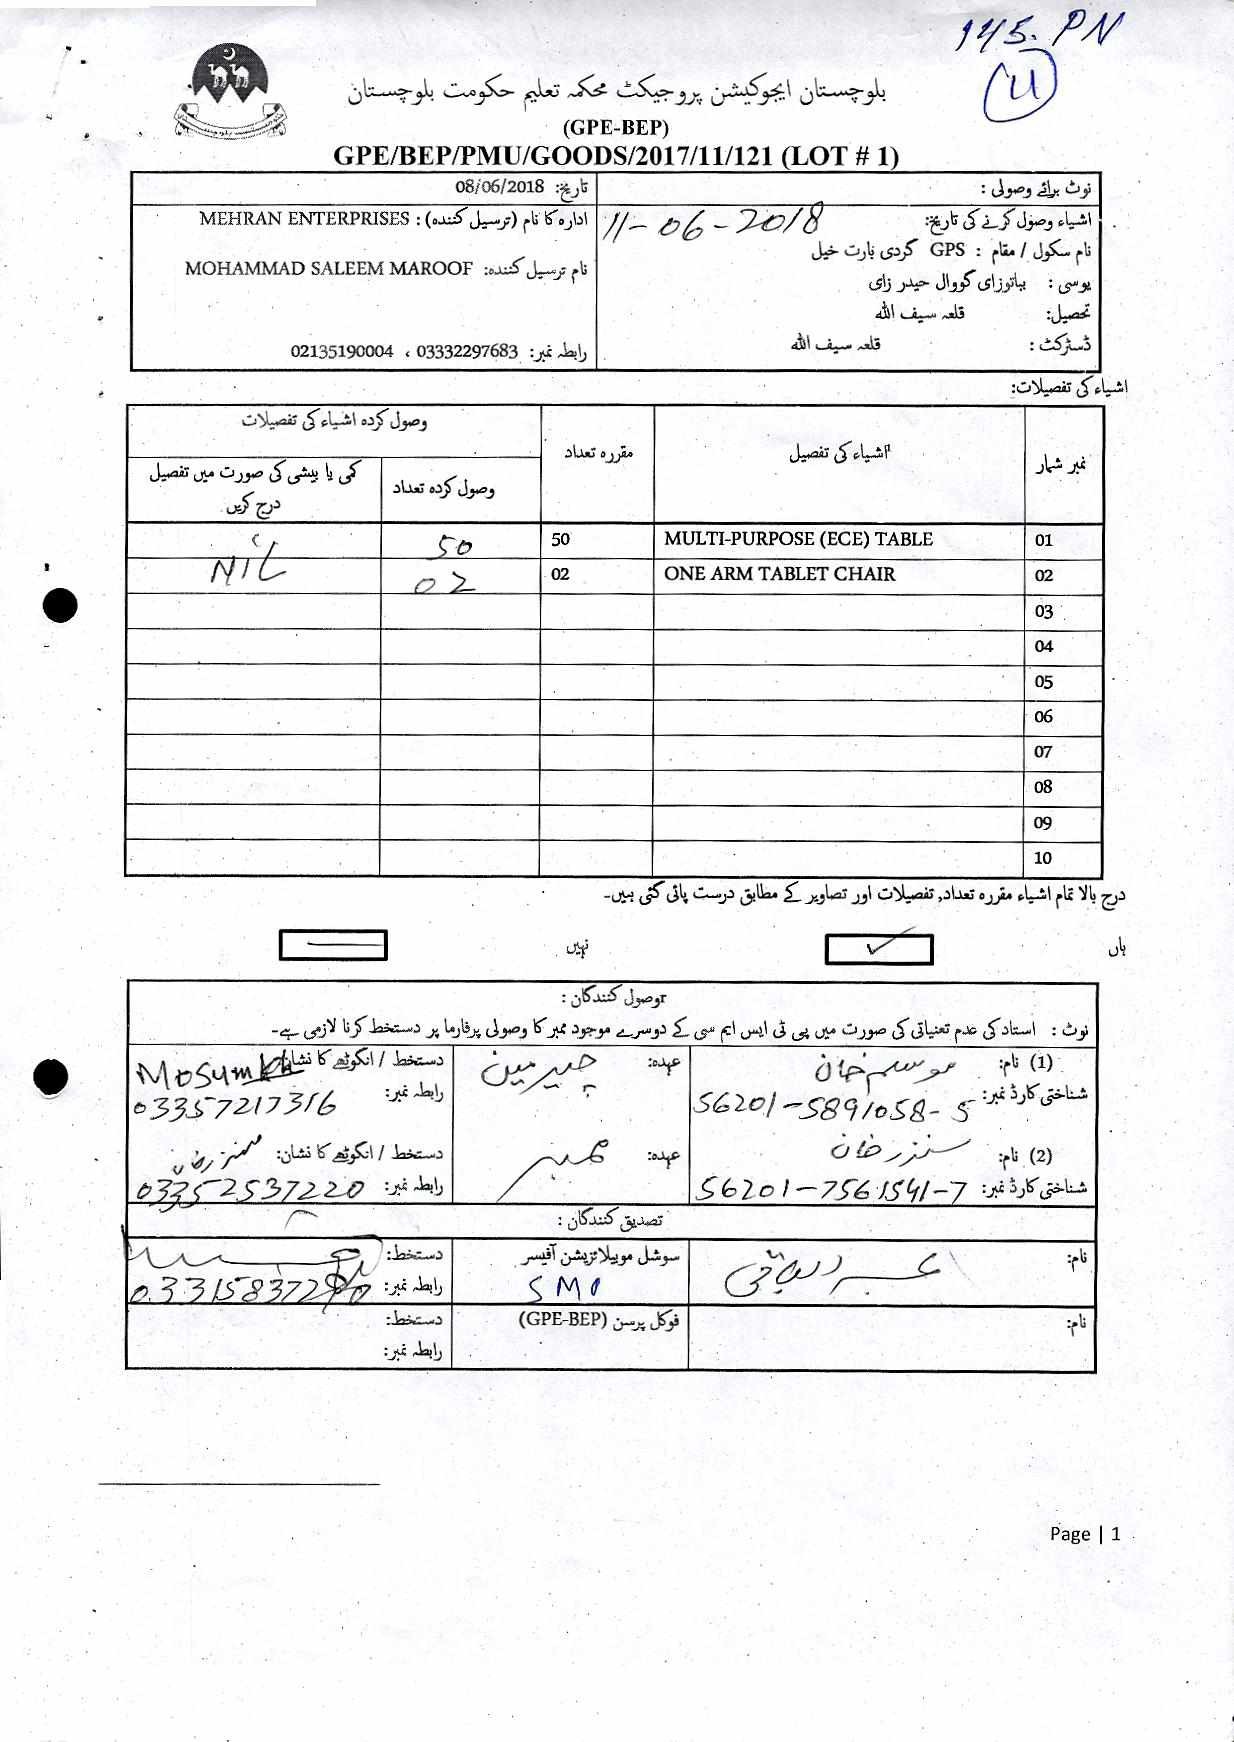 145. PN
بلوچستان ایجوکیشن پروجیکٹ محکمہ تعلیم حکومت بلوچستان
(GPE-BEP)
GPE/BEP/PMU/GOODS/2017/11/121 (LOT # 1)
نوٹ برائے وصولی :
تاریخ: 08/06/2018
اشیاء وصول کرنے کی تاریخ: 11-06-2018
ادارہ کا نام (ترسیل کنندہ) : MEHRAN ENTERPRISES
نام سکول / مقام : GPS گردی بارت خیل
نام ترسیل کنندہ: MOHAMMAD SALEEM MAROOF
یوسی : باتوزای گووال حیدر زای
تحصیل: قلعہ سیف اللہ
ڈسٹرکٹ : قلعہ سیف اللہ
رابطہ نمبر: 03332297683 ، 02135190004
اشیاء کی تفصیلات:
نمبر شمار
اشیاء کی تفصیل
مقررہ تعداد
وصول کردہ اشیاء کی تفصیلات
وصول کردہ تعداد
کمی یا بیشی کی صورت میں تفصیل درج کریں
01 MULTI-PURPOSE (ECE) TABLE 50 50
02 ONE ARM TABLET CHAIR 02 02 NIL
03
04
05
06
07
08
09
10
درج بالا تمام اشیاء مقررہ تعداد, تفصیلات اور تصاویر کے مطابق درست پائی گئی ہیں۔
ہاں ✓ نہیں
وصول کنندگان :
نوٹ : استاد کی عدم تعیناتی کی صورت میں پی ٹی ایس ایم سی کے دوسرے موجود ممبر کا وصولی پرفارما پر دستخط کرنا لازمی ہے۔
(1) نام: موسم خان عہدہ: چیرمین دستخط / انگوٹھے کا نشان:
شناختی کارڈ نمبر: 56201-5891058-5 رابطہ نمبر: 03357217316
(2) نام: سنزر خان عہدہ: ممبر دستخط / انگوٹھے کا نشان: سنزر خان
شناختی کارڈ نمبر: 56201-7561541-7 رابطہ نمبر: 03352537220
تصدیق کنندگان :
نام: سوشل موبیلائزیشن آفیسر دستخط:
SMO رابطہ نمبر:
نام: فوکل پرسن (GPE-BEP) دستخط:
رابطہ نمبر:
Page | 1